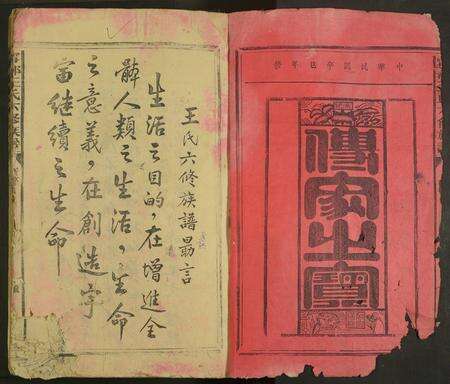 中華民國辛巳年修
傳家之寶
王氏六修族譜勗言
生活之目的，在增進全
體人類之生活，生命
之意義，在創造宇
宙繼續之生命
王氏六修族譜